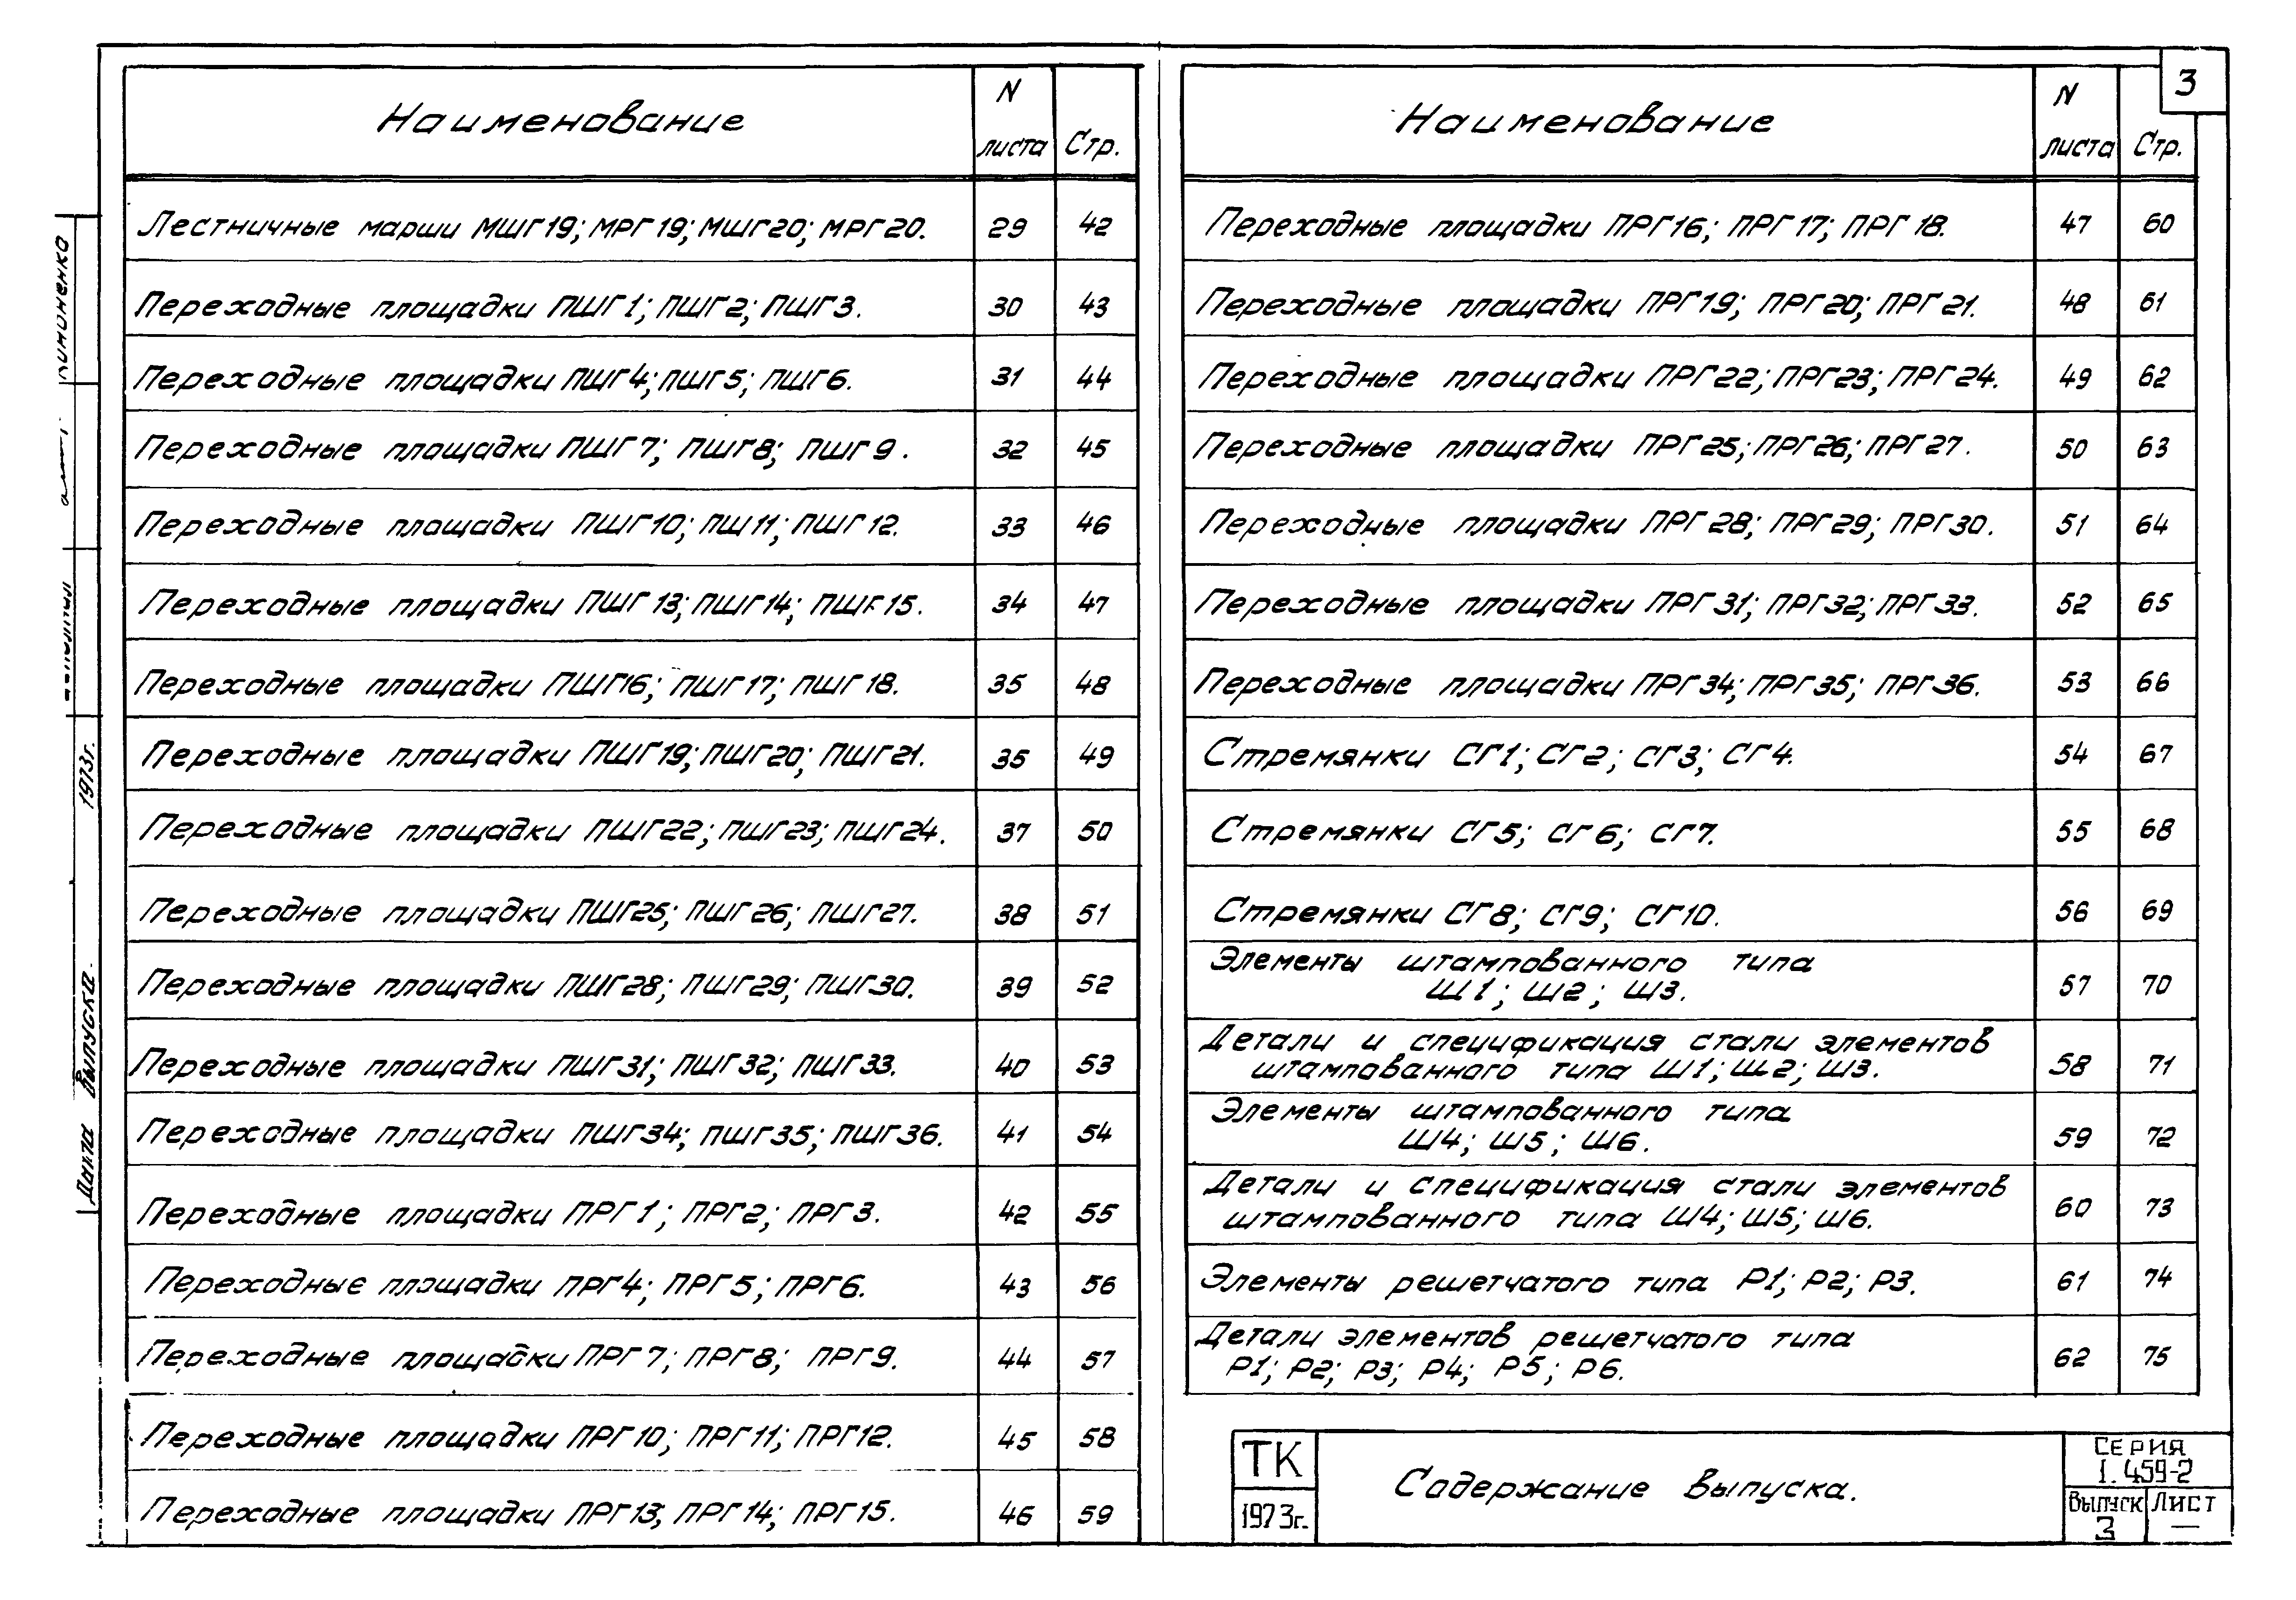 3
Наименование N листа Стр.
Лестничные марши МШГ19; МРГ19; МШГ20; МРГ20. 29 42
Переходные площадки ПШГ1; ПШГ2; ПШГ3. 30 43
Переходные площадки ПШГ4; ПШГ5; ПШГ6. 31 44
Переходные площадки ПШГ7; ПШГ8; ПШГ9. 32 45
Переходные площадки ПШГ10; ПШ11; ПШГ12. 33 46
Переходные площадки ПШГ13; ПШГ14; ПШГ15. 34 47
Переходные площадки ПШГ16; ПШГ17; ПШГ18. 35 48
Переходные площадки ПШГ19; ПШГ20; ПШГ21. 35 49
Переходные площадки ПШГ22; ПШГ23; ПШГ24. 37 50
Переходные площадки ПШГ25; ПШГ26; ПШГ27. 38 51
Переходные площадки ПШГ28; ПШГ29; ПШГ30. 39 52
Переходные площадки ПШГ31; ПШГ32; ПШГ33. 40 53
Переходные площадки ПШГ34; ПШГ35; ПШГ36. 41 54
Переходные площадки ПРГ1; ПРГ2; ПРГ3. 42 55
Переходные площадки ПРГ4; ПРГ5; ПРГ6. 43 56
Переходные площадки ПРГ7; ПРГ8; ПРГ9. 44 57
Переходные площадки ПРГ10; ПРГ11; ПРГ12. 45 58
Переходные площадки ПРГ13; ПРГ14; ПРГ15. 46 59
Наименование N листа Стр.
Переходные площадки ПРГ16; ПРГ17; ПРГ18. 47 60
Переходные площадки ПРГ19; ПРГ20; ПРГ21. 48 61
Переходные площадки ПРГ22; ПРГ23; ПРГ24. 49 62
Переходные площадки ПРГ25; ПРГ26; ПРГ27. 50 63
Переходные площадки ПРГ28; ПРГ29; ПРГ30. 51 64
Переходные площадки ПРГ31; ПРГ32; ПРГ33. 52 65
Переходные площадки ПРГ34; ПРГ35; ПРГ36. 53 66
Стремянки СГ1; СГ2; СГ3; СГ4. 54 67
Стремянки СГ5; СГ6; СГ7. 55 68
Стремянки СГ8; СГ9; СГ10. 56 69
Элементы штампованного типа
Ш1; Ш2; Ш3. 57 70
Детали и спецификация стали элементов
штампованного типа Ш1; Ш2; Ш3. 58 71
Элементы штампованного типа
Ш4; Ш5; Ш6. 59 72
Детали и спецификация стали элементов
штампованного типа Ш4; Ш5; Ш6. 60 73
Элементы решетчатого типа Р1; Р2; Р3. 61 74
Детали элементов решетчатого типа
Р1; Р2; Р3; Р4; Р5; Р6. 62 75
ТК
1973г.
Содержание выпуска.
Серия
1.459-2
Выпуск
3
Лист
—
Дата выпуска. 1973г.